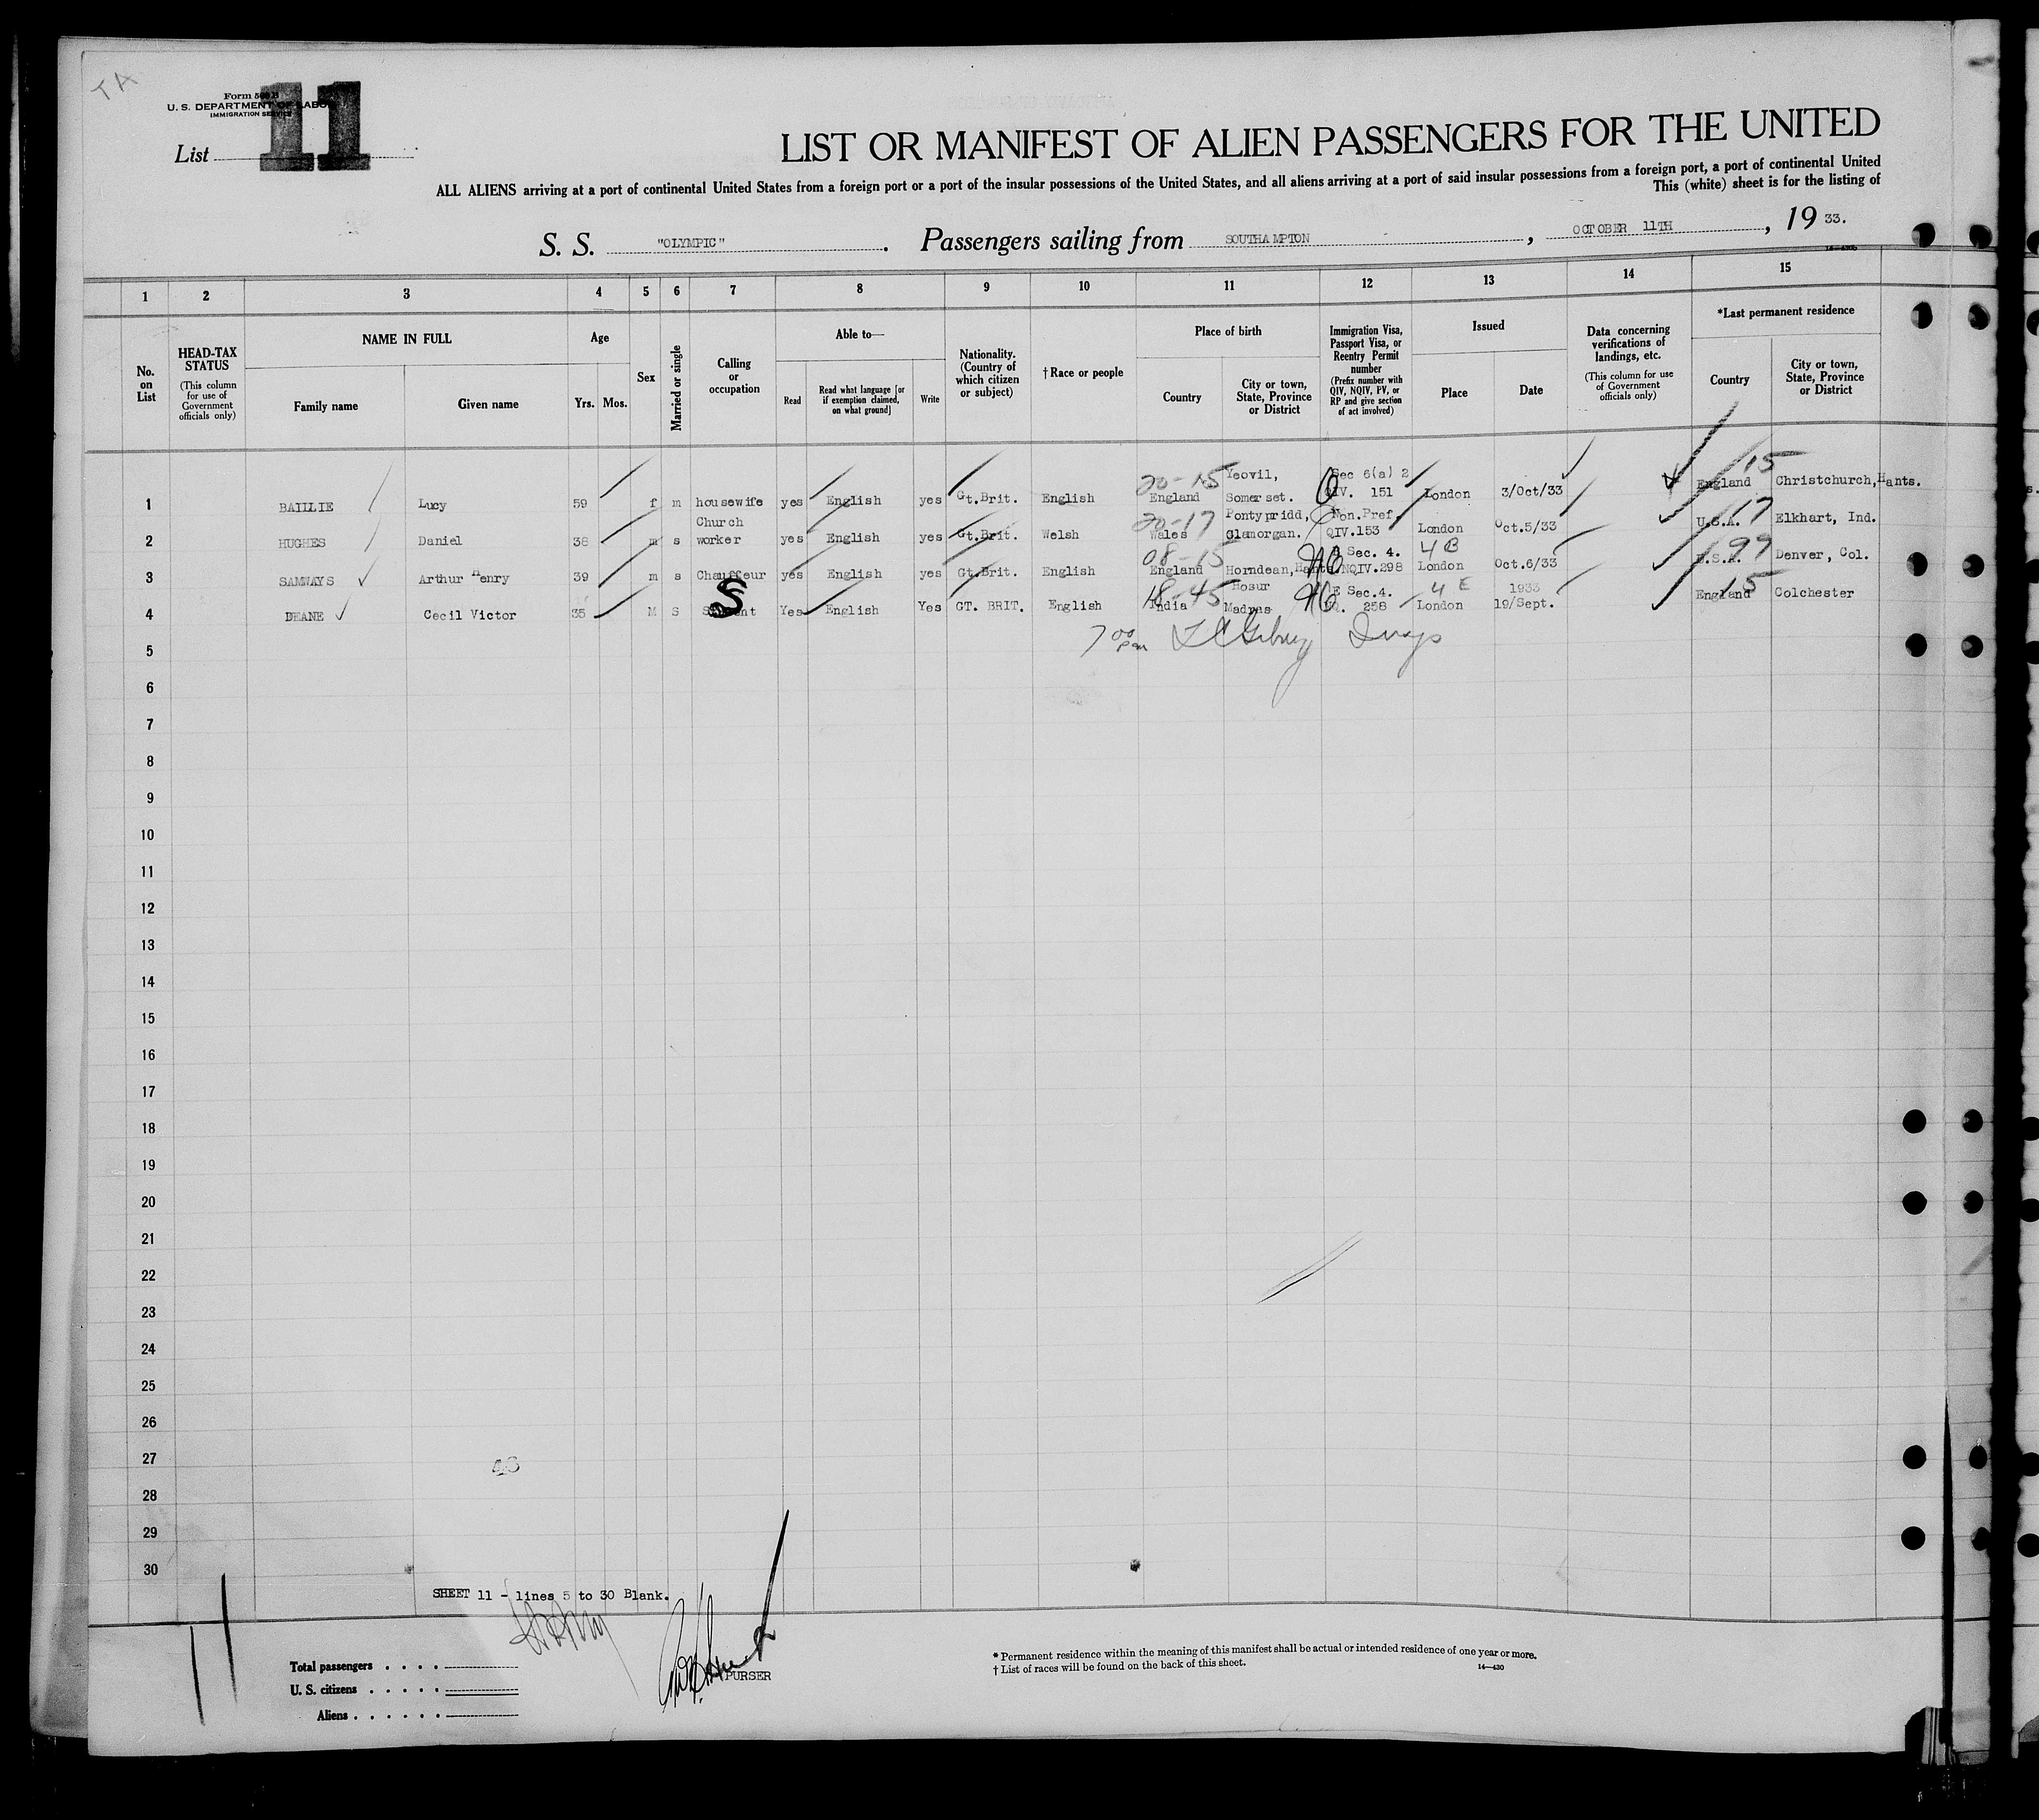 TA
Form 500 B
U. S. DEPARTMENT OF LABOR
IMMIGRATION SERVICE
List 11
LIST OR MANIFEST OF ALIEN PASSENGERS FOR THE UNITED
ALL ALIENS arriving at a port of continental United States from a foreign port or a port of the insular possessions of the United States, and all aliens arriving at a port of said insular possessions from a foreign port, a port of continental United
This (white) sheet is for the listing of
S. S. "OLYMPIC". Passengers sailing from SOUTHAMPTON, OCTOBER 11TH, 19 33.
1 2 3 4 5 6 7 8 9 10 11 12 13 14 15
No. on List
HEAD-TAX STATUS (This column for use of Government officials only)
NAME IN FULL
Family name Given name
Age
Yrs. Mos.
Sex
Married or single
Calling or occupation
Able to—
Read Read what language [or if exemption claimed, on what ground] Write
Nationality. (Country of which citizen or subject)
† Race or people
Place of birth
Country City or town, State, Province or District
Immigration Visa, Passport Visa, or Reentry Permit number (Prefix number with QIV, NQIV, PV, or RP and give section of act involved)
Issued
Place Date
Data concerning verifications of landings, etc. (This column for use of Government officials only)
*Last permanent residence
Country City or town, State, Province or District
20-15 Yeovil, Sec 6(a) 2 15
1 BAILLIE Lucy 59 f m housewife yes English yes Gt.Brit. English England Somerset. QIV. 151 London 3/Oct/33 England Christchurch,Hants.
Church 20-17 Pontypridd, Non.Pref 17
2 HUGHES Daniel 38 m s worker yes English yes Gt.Brit. Welsh Wales Glamorgan. QIV.153 London Oct.5/33 U.S.A. Elkhart, Ind.
08-15 Sec. 4. 4B 99
3 SAMWAYS Arthur Henry 39 m s Chauffeur yes English yes Gt.Brit. English England Horndean,Hants NQIV.298 London Oct.6/33 U.S.A. Denver, Col.
S 18-45 Hosur E Sec.4. 4 E 1933 15
4 DEANE Cecil Victor 35 M S Student Yes English Yes GT. BRIT. English India Madras 258 London 19/Sept. England Colchester
5 7 00 pm
6
7
8
9
10
11
12
13
14
15
16
17
18
19
20
21
22
23
24
25
26
27
43
28
29
30
SHEET 11 - lines 5 to 30 Blank.
11
Total passengers . . . .
U. S. citizens . . . . .
Aliens . . . . . .
PURSER
* Permanent residence within the meaning of this manifest shall be actual or intended residence of one year or more.
† List of races will be found on the back of this sheet.
14—430